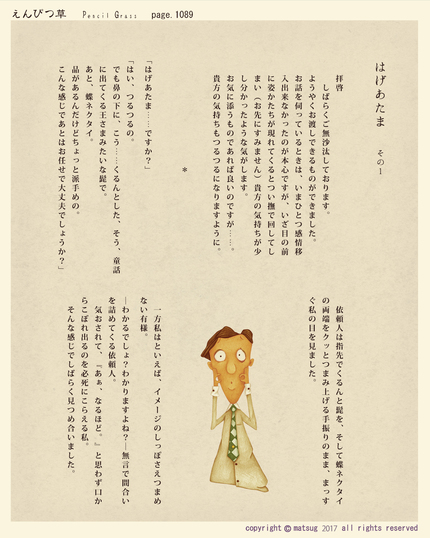 えんぴつ草 Pencil Grass page.1089
はげあたま その1
拝啓
しばらくご無沙汰しております。
ようやくお渡しできるものができました。
お話を伺っているときは、いまひとつ感情移
入出来なかったのが本心ですが、いざ目の前
に姿かたちが現れてくるとつい撫で回してし
まい（お先にすみません）貴方の気持ちが少
し分かったような気がします。
お気に添うものであれば良いのですが……。
貴方の気持ちもつるつるになりますように。
*
「はげあたま……ですか？」
「はい、つるつるの。
でも鼻の下に、こう……くるんとした、そう、童話
に出てくる王さまみたいな髭で。
あと、蝶ネクタイ。
品があるんだけどちょっと派手めの。
こんな感じであとはお任せで大丈夫でしょうか？」
依頼人は指先でくるんと髭を、そして蝶ネクタイ
の両端をクッとつまみ上げる手振りのまま、まっす
ぐ私の目を見ました。
一方私はといえば、イメージのしっぽさえつまめ
ない有様。
―わかるでしょ？わかりますよね？―無言で間合い
を詰めてくる依頼人。
気おされて、『あぁ、なるほど。』と思わず口か
らこぼれ出るのを必死にこらえる私。
そんな感じでしばらく見つめ合いました。
copyright © matsug 2017 all rights reserved